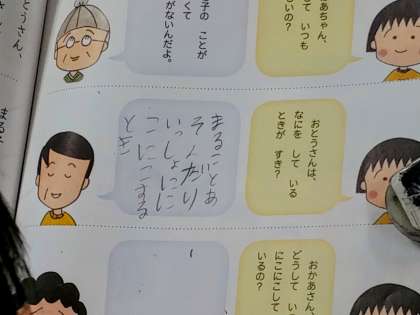 あちゃん、
て いつも
いの?
子の ことが
くて
がないんだよ。
おとうさんは、
なにを して いる
ときが すき?
まることあ
そんだり
いっしょにに
こにこする
とき
おかあさん、
どうして い
にこにこして
いるの?
とうさん、